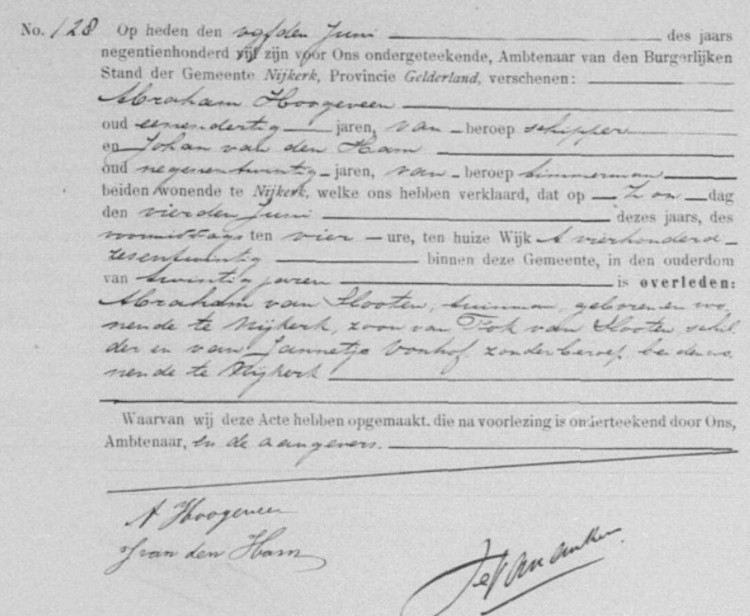 No. 128 Op heden den vijfden Juni des jaars
negentienhonderd vijf zijn voor Ons ondergeteekende, Ambtenaar van den Burgerlijken
Stand der Gemeente Nijkerk, Provincie Gelderland, verschenen:
Abraham Hoogeveen
oud eenendertig jaren, van beroep schipper
en Johan van den Ham
oud negenentwintig jaren, van beroep timmerman
beiden wonende te Nijkerk, welke ons hebben verklaard, dat op Zon dag
den vierden Juni dezes jaars, des
voormiddags ten vier ure, ten huize Wijk A vierhonderd
zesentwintig binnen deze Gemeente, in den ouderdom
van twintig jaren is overleden:
Abraham van Slooten, tuinman, geboren en wo-
nende te Nijkerk, zoon van van Slooten, schil-
der en van Jannetje Vonhof, zonder beroep, beiden wo-
nende te Nijkerk
Waarvan wij deze Acte hebben opgemaakt, die na voorlezing is onderteekend door Ons,
Ambtenaar, en de aangevers.
A Hoogeveen
J van den Ham